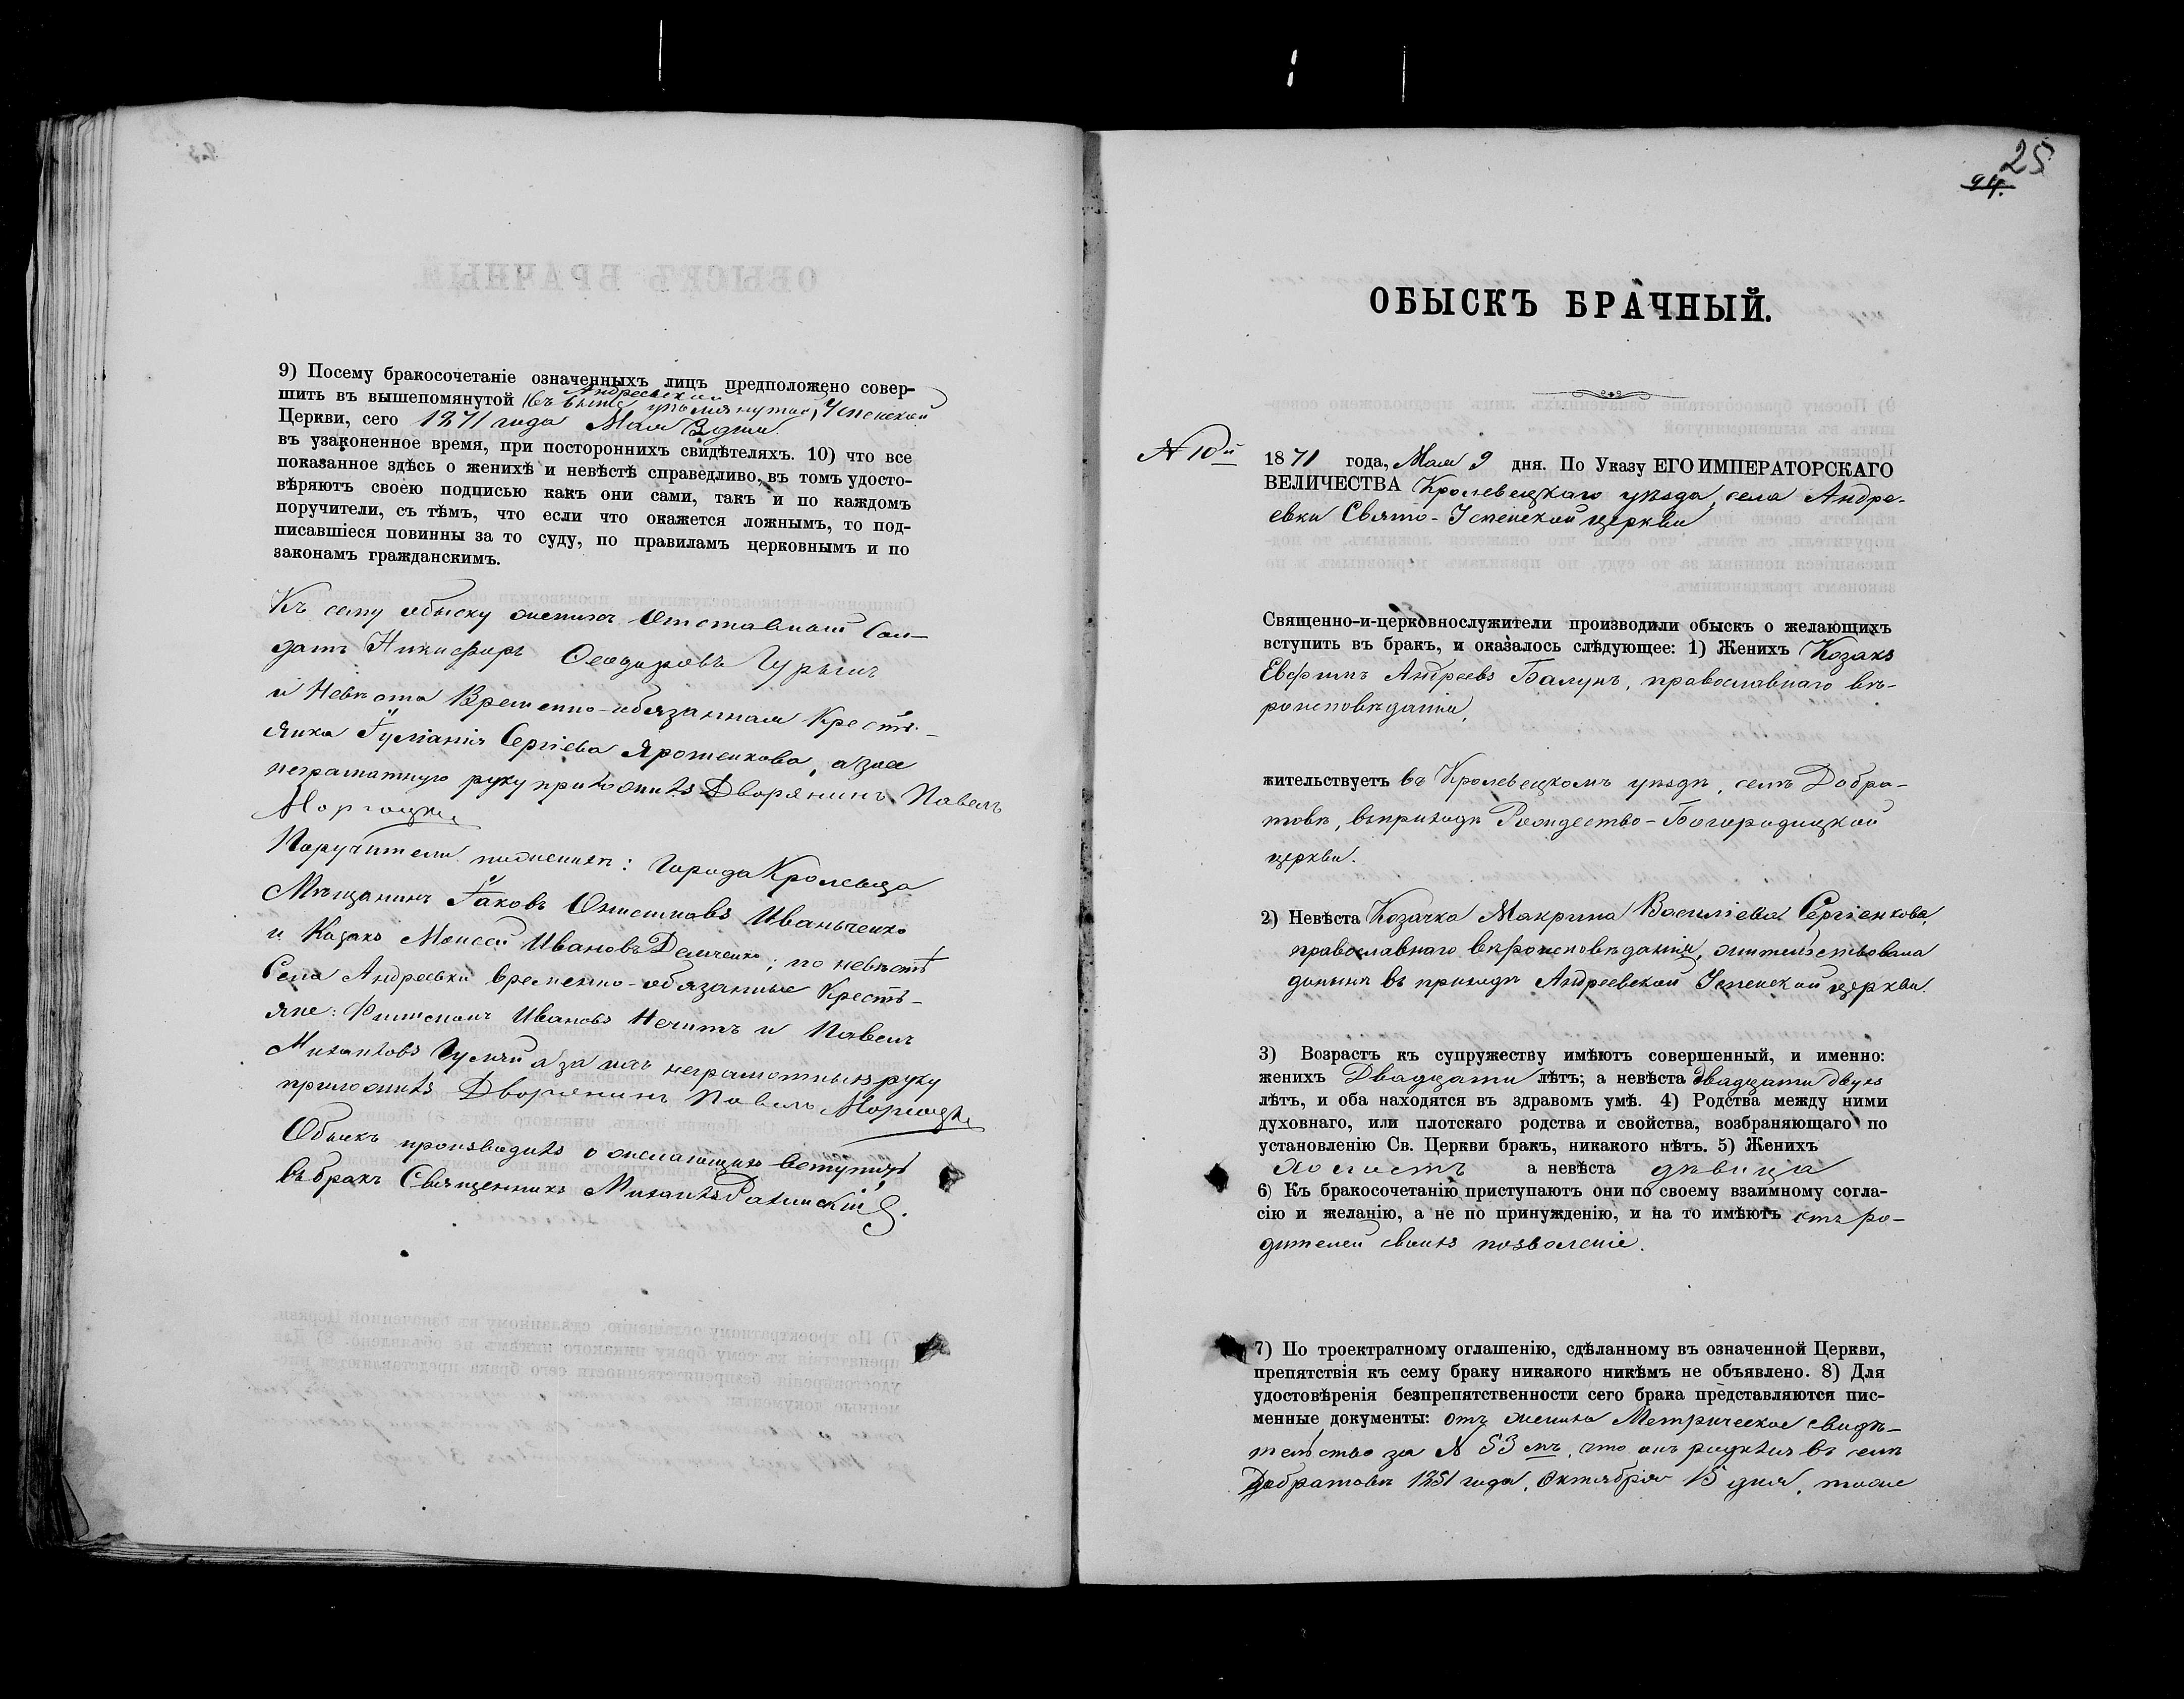 9) Посему бракосочетаніе означенныхъ лицъ предположено совер-
шить въ вышепомянутой въ выше упомянутой Андреевской Успенской
Церкви, сего 1871 года Мая 3 дня.
въ узаконенное время, при постороннихъ свидѣтеляхъ. 10) что все
показанное здѣсь о женихѣ и невѣстѣ справедливо, въ томъ удосто-
вѣряютъ своею подписью какъ они сами, такъ и по каждомъ
поручители, съ тѣмъ, что если что окажется ложнымъ, то под-
писавшіеся повинны за то суду, по правиламъ церковнымъ и по
законамъ гражданскимъ.
Къ сему обыску женихъ Отставный Сол-
датъ Никифоръ Ѳеодоровъ Гурынъ
и Невѣста Временно-обязанная Кресть-
янка Іуліанія Сергіева Ярошенкова, а за нее
неграматную руку приложилъ Дворянинъ Павелъ
Поручители по женихѣ: Города Кролевца
Мѣщанинъ Іаковъ Иваньченко
и Казакъ Моисей Ивановъ Демченко; по невѣстѣ
Села Андреевки временно-обязанные Кресть-
яне: Филиппъ Ивановъ Нечитъ и Павелъ
Михаиловъ а за ихъ неграмотныхъ руку
приложилъ Дворянинъ Павелъ
Обыскъ производилъ о желающихъ вступить
въ бракъ Священникъ Михаилъ
25
24.
ОБЫСКЪ БРАЧНЫЙ.
№ 10й
1871 года, Мая 9 дня. По Указу ЕГО ИМПЕРАТОРСКАГО
ВЕЛИЧЕСТВА Кролевецкаго уѣзда, села Андре-
евки Свято-Успенской церкви
Священно-и-церковнослужители производили обыскъ о желающихъ
вступить въ бракъ, и оказалось слѣдующее: 1) Женихъ Козакъ
Евфимъ Андреевъ Балунъ, православнаго вѣ-
роисповѣданія,
жительствуетъ въ Кролевецкомъ уѣздѣ, селѣ Добра-
товѣ, въ приходѣ Рождество-Богородицкой
церкви.
2) Невѣста Козачка Макрина Василіева Сергіенкова,
православнаго вѣроисповѣданія, жительствовала
донынѣ въ приходѣ Андреевской Успенской церкви.
3) Возрастъ къ супружеству имѣютъ совершенный, и именно:
женихъ Двадцати лѣтъ; а невѣста двадцати двухъ
лѣтъ, и оба находятся въ здравомъ умѣ. 4) Родства между ними
духовнаго, или плотскаго родства и свойства, возбраняющаго по
установленію Св. Церкви бракъ, никакого нѣтъ. 5) Женихъ
холостъ а невѣста дѣвица
6) Къ бракосочетанію приступаютъ они по своему взаимному согла-
сію и желанію, а не по принужденію, и на то имѣютъ отъ ро-
дителей своихъ позволеніе.
7) По троектратному оглашенію, сдѣланному въ означенной Церкви,
препятствія къ сему браку никакого никѣмъ не объявлено. 8) Для
удостовѣренія безпрепятственности сего брака представляются пис-
менные документы: отъ жениха Метрическое свидѣ-
тельство за № 53 мъ, что онъ родился въ селѣ
Добратовѣ 1851 года, Октября 15 дня,